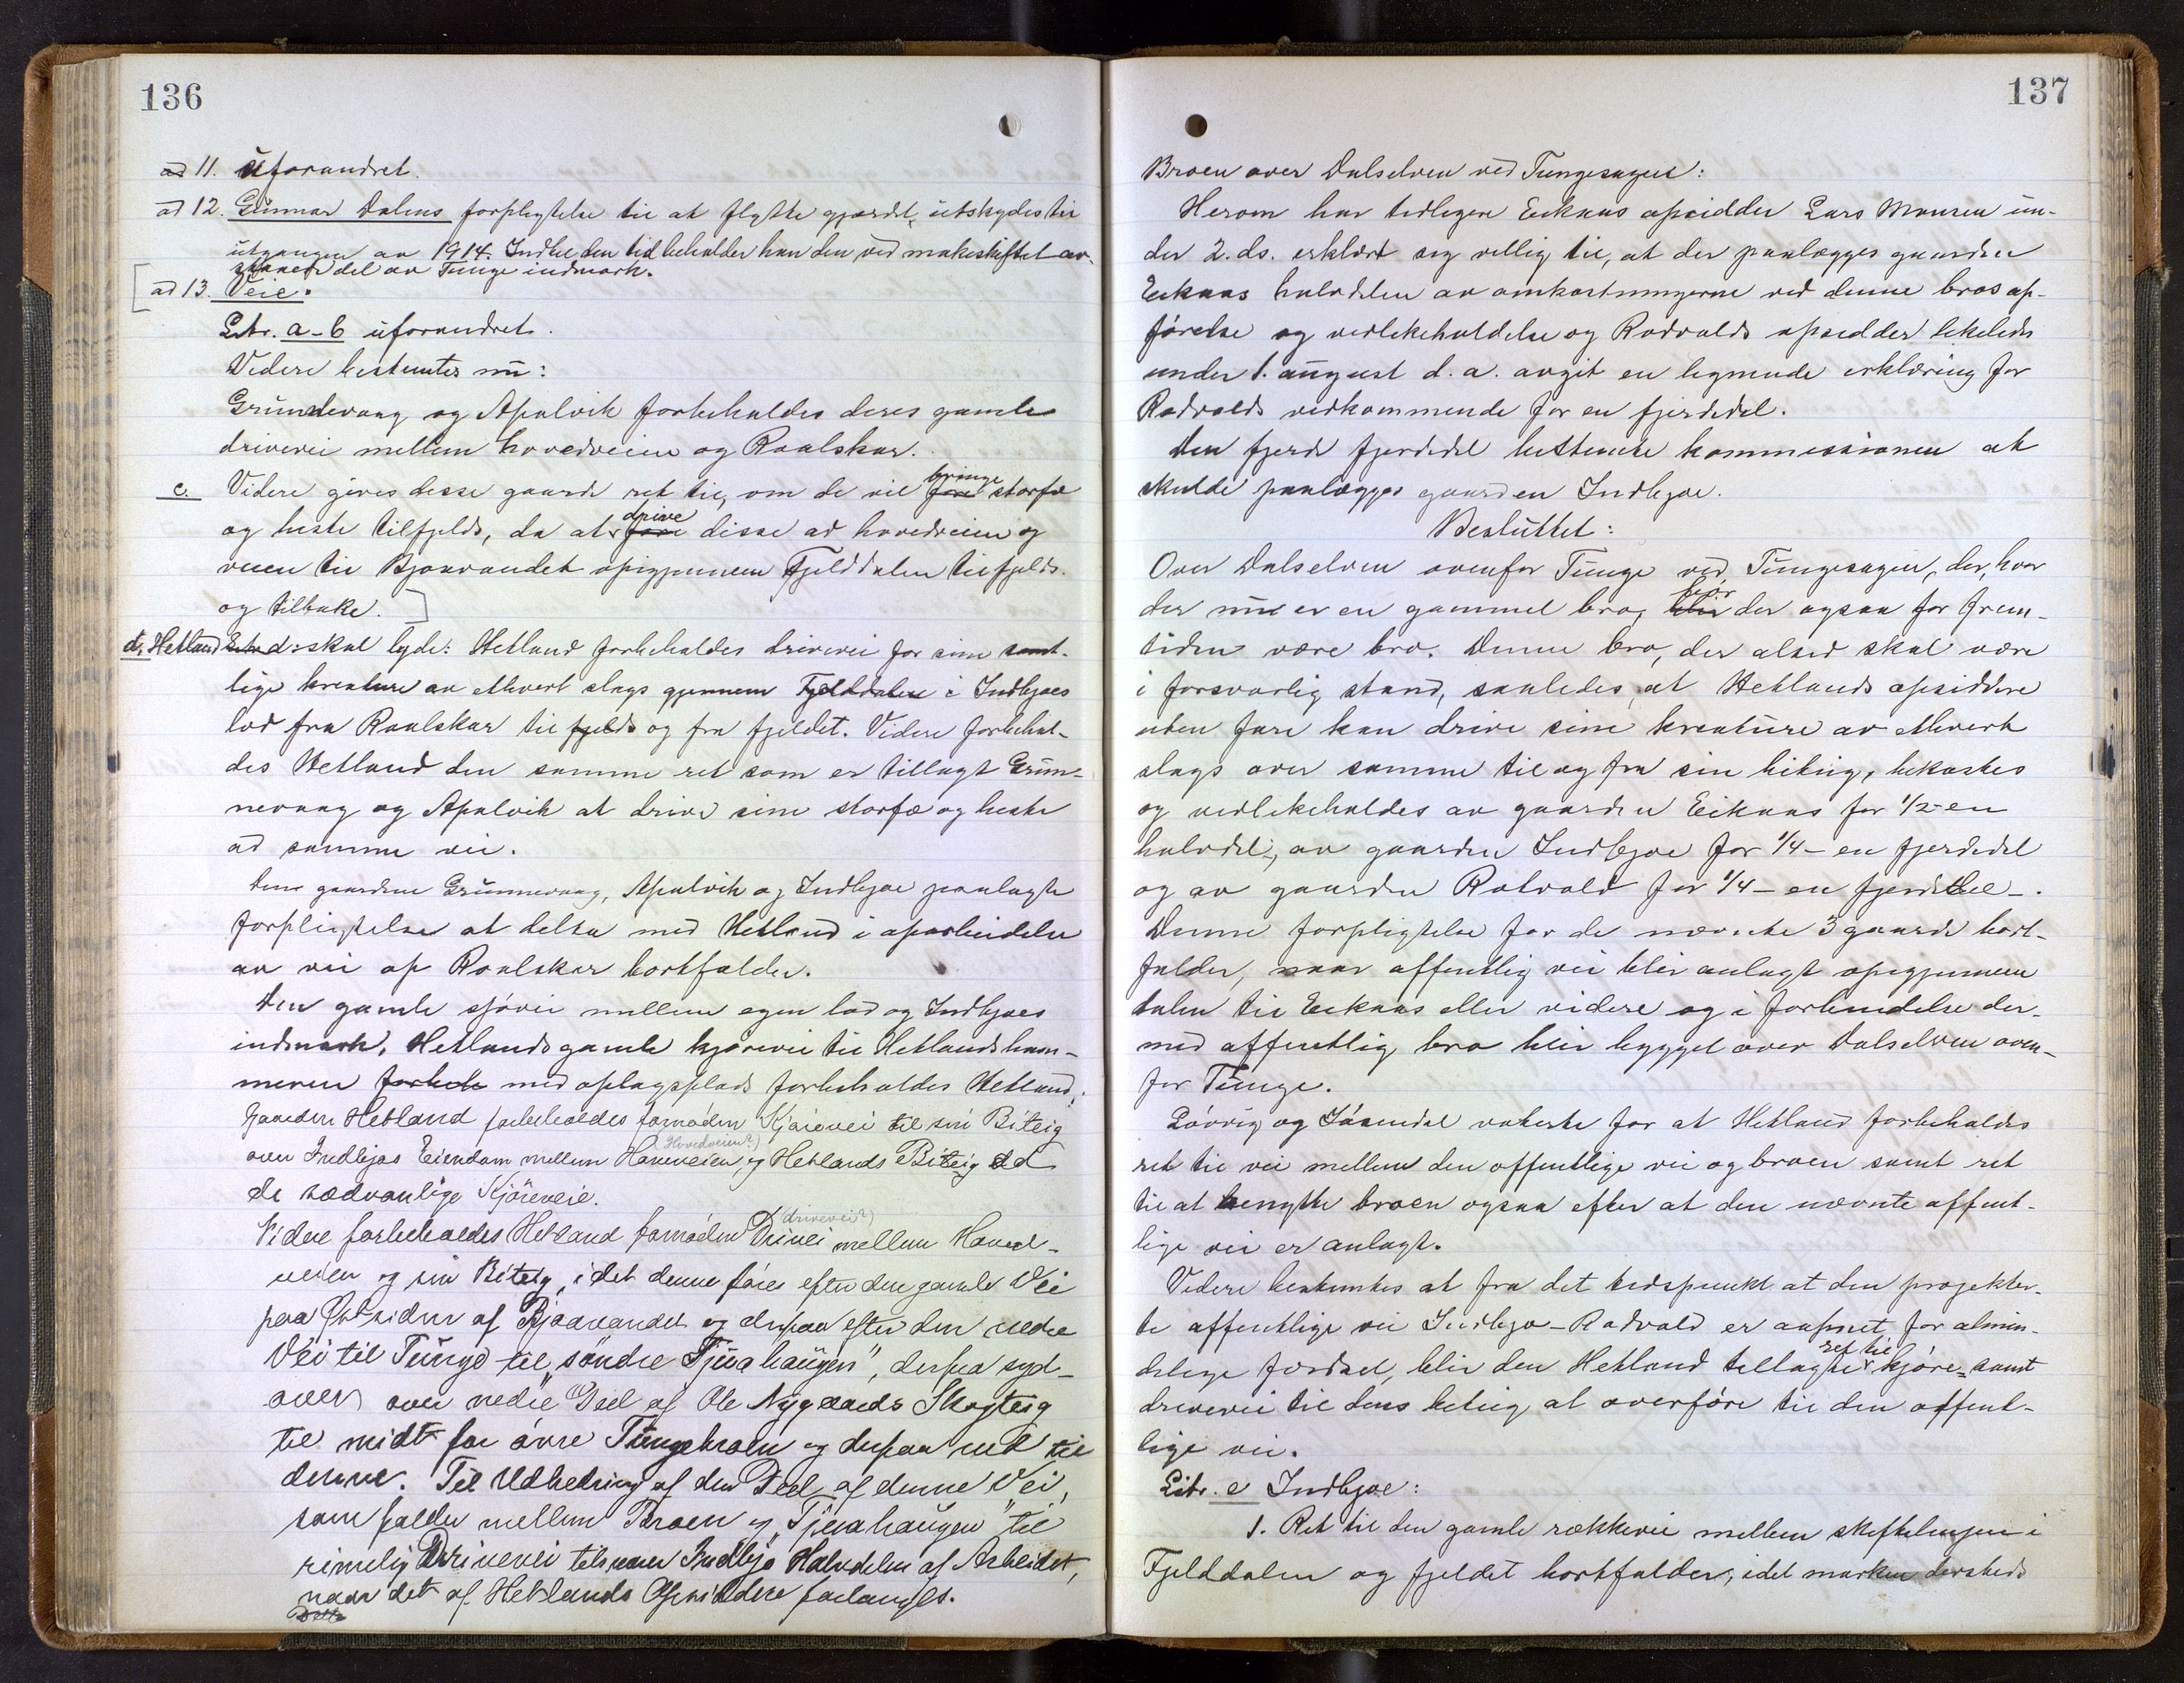 136
ad 11. Uforandret.
ad 12. Gunnar Dalens forpligtelse til at flytte gjærdet, utskydes til
utgangen av 1914. Indtil den tid beholder han den ved makeskiftet av-
staaede del av Tunge indmark.
ad 13. Veie.
Litr. a-b uforandret.
Videre bestemtes nu:
Grunnevaag og Apalvik forbeholdes deres gamle
drivevei mellem hovedveien og Raalskar.
c. Videre gives disse gaarde ret til, om de vil bringe storfæ
og heste tilfjelds, da at drive disse ad hovedveien og
veien til Bjaavandet opigjennem Fjelddalen tilfjelds.
og tilbake.
d. Hetland Litr. d: skal lyde: Hetland forbeholdes drivevei for sine samt-
lige kreature av ethvert slags gjennem Fjelddalen i Indbjoes
lod fra Raalskar til fjelds og fra fjeldet. Videre forbehol-
des Hetland den samme ret som er tillagt Grun-
nevaag og Apalvik at drive sine storfæ og heste
ad samme vei.
Den gaardene Grunnevaag, Apalvik og Indbjoe paalagte
forpligtelse at delta med Hetland i oparbeidelse
av vei op Raalskar bortfalder.
Den gamle sjøvei mellem egen lod og Indbjoes
indmark, Hetlands gamle kjørevei til Hetlandsham-
meren forbeh med oplagsplads forbeholdes Hetland.
Gaarden Hetland forbeholdes fornøden Kjørevei til sin Biteig
over Indbjos Eiendom mellem Haneveien (Hovedveien?) og Hetlands Biteig ad
de sædvanlige Kjøreveie.
Videre forbeholdes Hetland fornøden Drivei (drivevei?) mellem Hoved-
veien og sin Biteig, i det denne føres efter den gamle Vei
paa Østsiden af Bjaavandet og derpaa efter den nedre
Vei til Tunge til "søndre Tjuahaugen", derfra syd-
over over nedre Deel af Ole Nygaards Skogteig
til midt for øvre Tungebroen og derpaa ned til
denne. Til Udbedring af den Deel af denne Vei,
som falder mellem Broen og "Tjuahaugen" til
rimelig Drivevei tilsvarer Indbjo Halvdelen af Arbeidet,
naar det af Hetlands Opsiddere forlanges.
137
Broen over Dalselven ved Tungesagen:
Herom har tidligere Eikaas opsidder Lars Monsen un-
der 2. ds. erklært sig villig til, at der paalægges gaarden
Eikaas halvdelen av omkostningerne ved denne bros op-
førelse og vedlikeholdelse og Rødvolds opsidder likeledes
under 1. august d. a. avgit en lignende erklæring for
Rødvolds vedkommende for en fjerdedel.
Den fjerde fjerdedel bestemte kommissionen at
skulde paalægges gaarden Indbjoe.
Besluttet:
Over Dalselven ovenfor Tunge ved Tungesagen, der, hvor
der nu er en gammel bro, bør der ogsaa for frem-
tiden være bro. Denne bro, der altid skal være
i forsvarlig stand, saaledes, at Hetlands opsiddere
uten fare kan drive sine kreature av ethvert
slags over samme til og fra sin biteig, bekostes
og vedlikeholdes av gaarden Eikaas for 1/2 - en
halvdel, av gaarden Indbjoe for 1/4 - en fjerdedel
og av gaarden Rotvold for 1/4 - en fjerdedel -.
Denne forpligtelse for de nævnte 3 gaarde bort-
falder, naar offentlig vei blir anlagt opigjennem
dalen til Eikaas eller videre og i forbindelse der-
med offentlig bro blir bygget over Dalselven oven-
for Tunge.
Løvvig og Jøsendal voterte for at Hetland forbeholdes
ret til vei mellem den offentlige vei og broen samt ret
til at benytte broen ogsaa efter at den nævnte offent-
lige vei er anlagt.
Videre bestemtes at fra det tidspunkt at den projekter-
te offentlige vei Indbjo-Rødvold er aapnet for almin-
delige færdsel, blir den Hetland tillagte ret til kjøre- samt
drivevei til dens biteig at overføre til den offent-
lige vei.
Litr. e Indbjoe:
1. Ret til den gamle rækkevei mellem skiftelinjen i
Fjelddalen og fjeldet bortfalder, idet marken dersteds